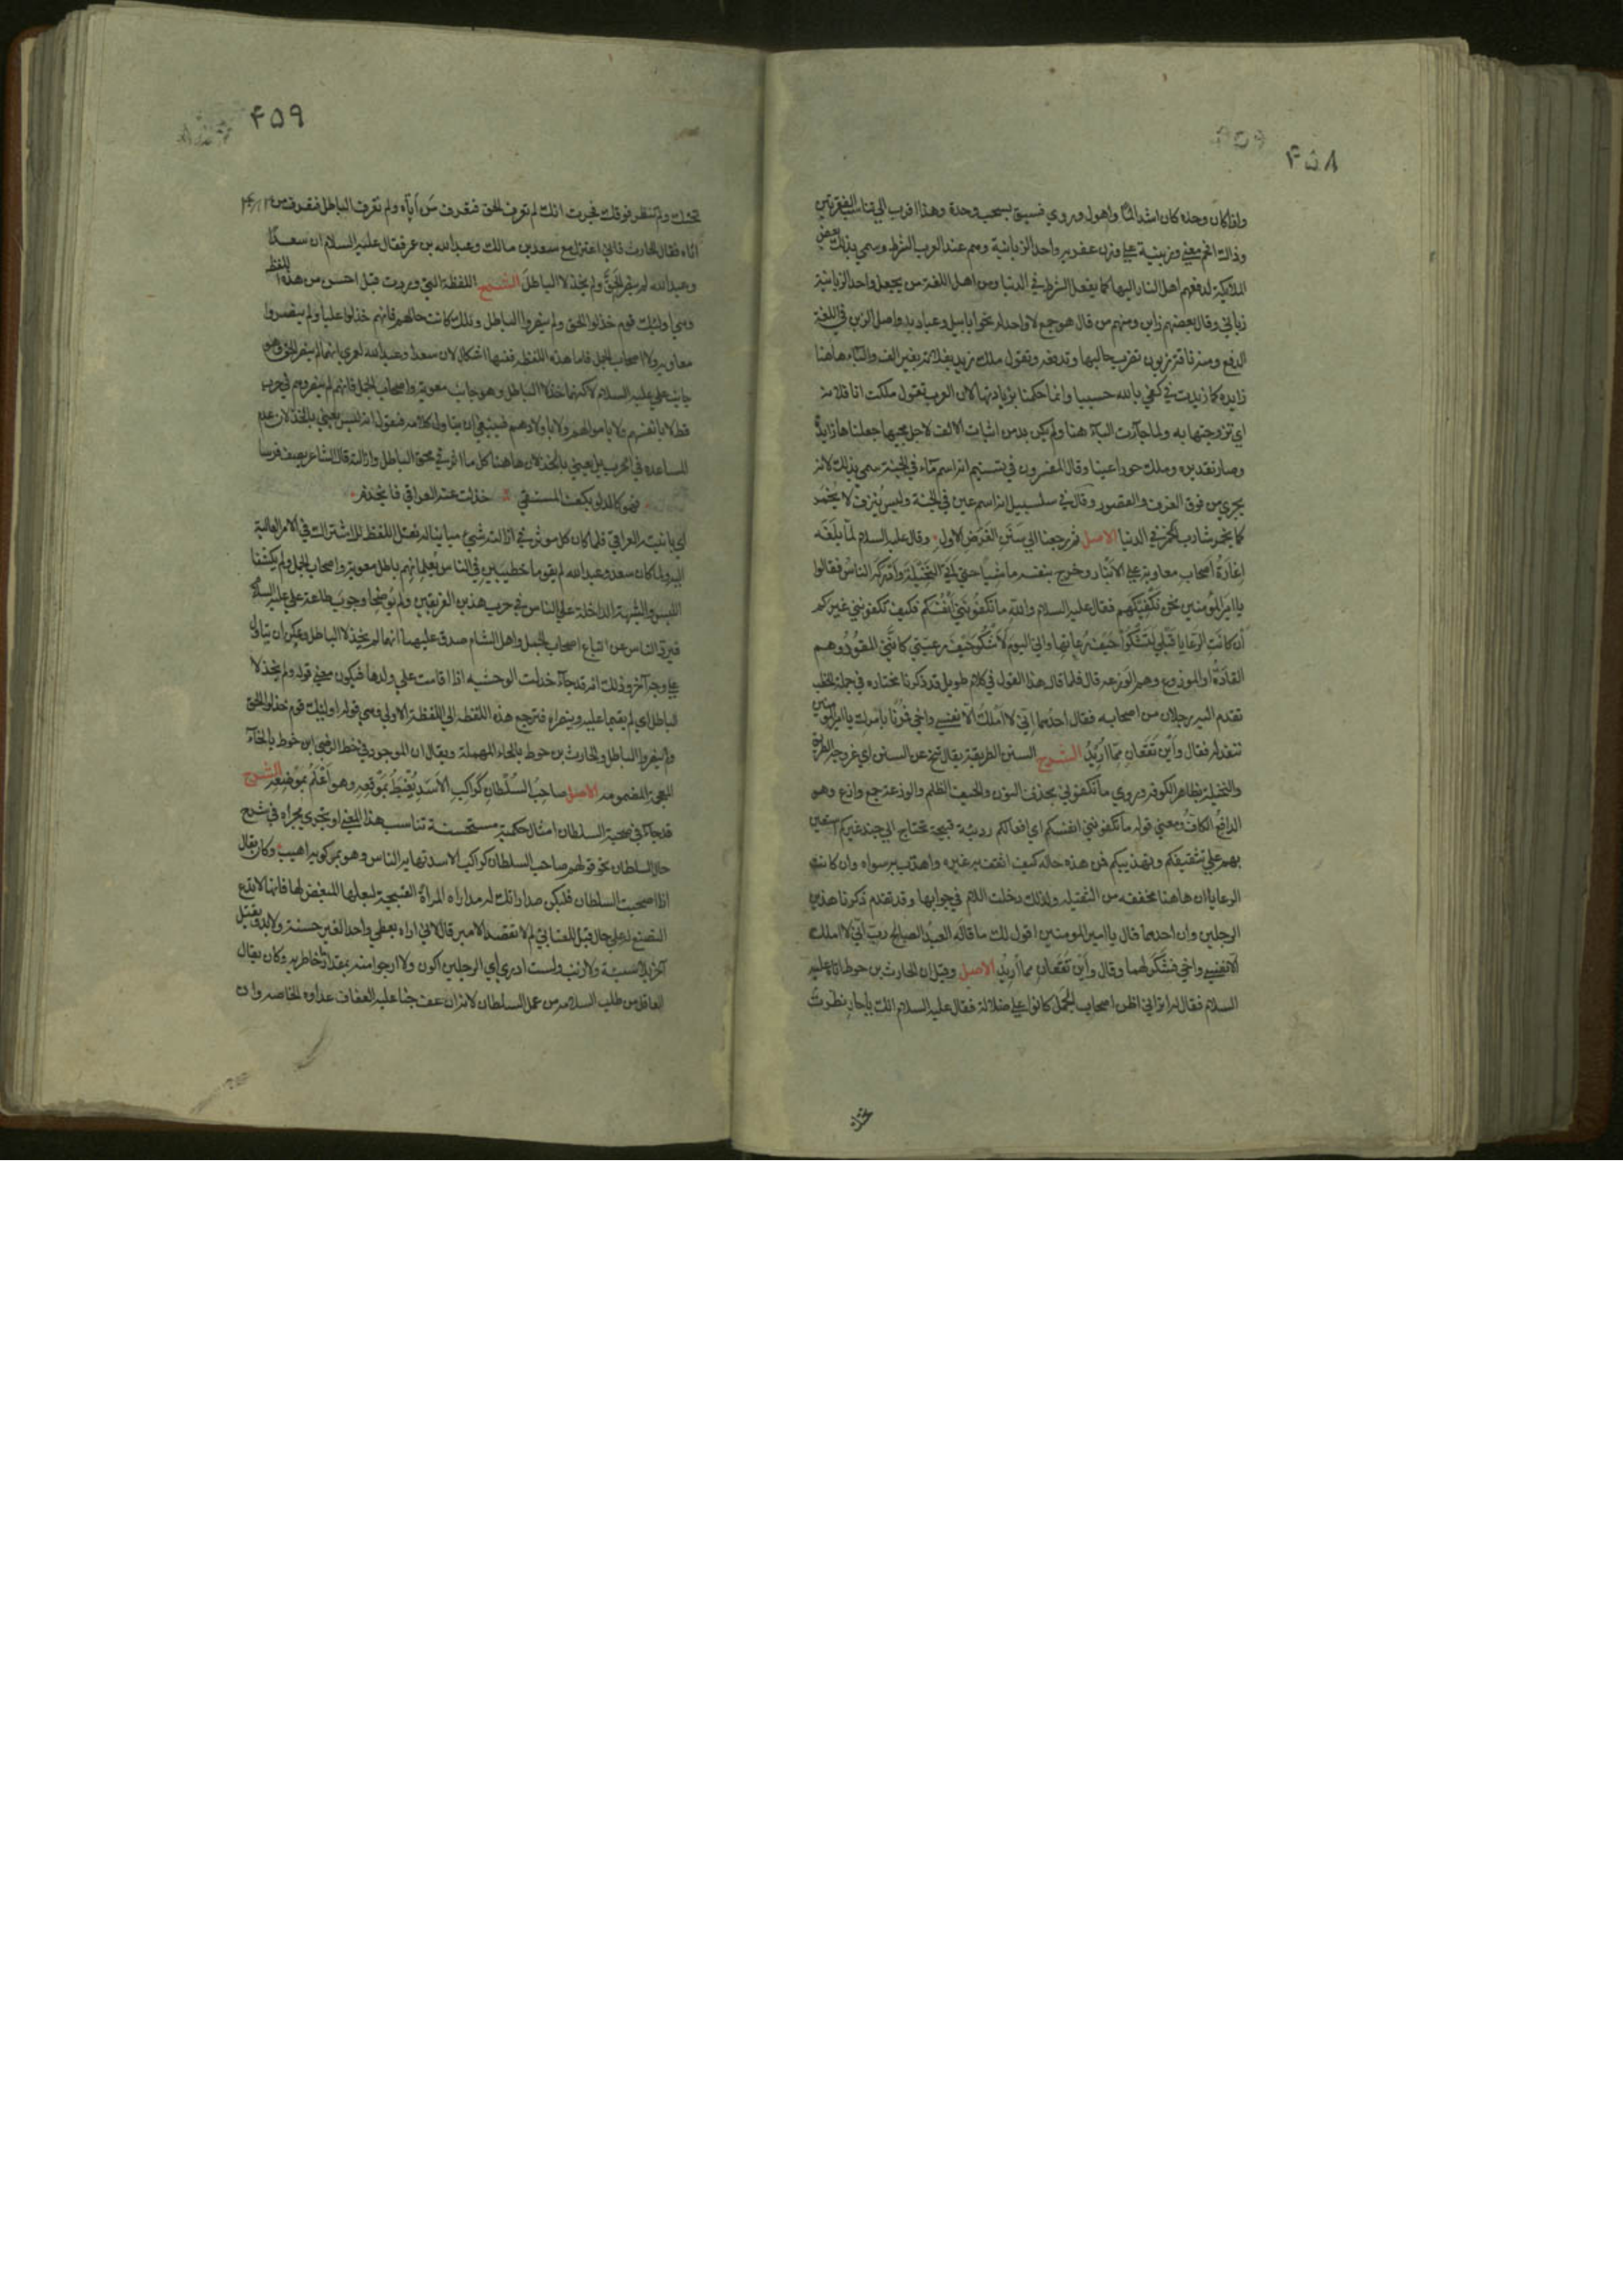 ۴۵۸
واذا كان وحده كان اشد الما واهول وروي فسيق بسحب وحدة وهذا اقرب الي تناسب الفقرتين
وذالك اخم معني وزبينية علي وزن عفرية واحد الزبانية وهم عند العرب الشرط وسمي بذلك بعض
الملايكة لدفعهم اهل النار اليها كما يفعل الشرط في الدنيا ومن اهل اللغة من يجعل واحد الزبانية
زباني وقال بعضهم زابن ومنهم من قال هو جمع لا واحد له نحو ابابيل وعباديد واصل الزبن في اللغة
الدفع ومنه ناقة زبون تضرب حالبها وتدفعه وتقول ملك زيد بفلانة بغير الف والباء هاهنا
زايدة كما زيدت في كفي بالله حسيبا وانما حكمنا بزيادتها لان العرب تقول ملكت انا فلانة
اي تزوجتها به ولما جاءت الباء هنا ولم يكن بد من اثبات الالف لاجل مجيها جعلناها زايدة
وصار تقديره وملك حورا عينا وقال المفسرون في تسنيم انه اسم ماء في الجنة سمي بذلك لانه
يجري من فوق الغرف والقصور وقالوا في سلسبيل انه اسم عين في الجنة وليس ينزف لا يخمر
كما يخمر شارب الخمر في الدنيا الاصل ثم رجعنا الي سنن الغرض الاول وقال عليه السلام لما بلغه
اغارة اصحاب معاوية علي الانبار وخرج بنفسه ماشيا حتي اتي النخيلة وادركه الناس فقالوا
يا امير المؤمنين نحن نكفيكهم فقال عليه السلام والله ما تكفونني انفسكم فكيف تكفونني غيركم
ان كانت الرعايا قبلي لتشكوا حيف رعاتها واني اليوم لاشكو حيف رعيتي كانني المقود وهم
القادة او الموزوع وهم الوزعة قال فلما قال هذا القول في كلام طويل قد ذكرنا مختاره في جملة الخطب
تقدم اليه رجلان من اصحابه فقال احدهما اني لا املك الا نفسي واخي فمرنا بامرك يا امير المؤمنين
ننفذ له فقال واين تقعان مما اريد الشرح السنن الطريقة يقال تنح عن السنن اي عن وجه الطريق
والنخيلة بظاهر الكوفة وروي ما تكفوني بحذف النون والحيف الظلم والوزعة جمع وازع وهو
الدافع الكاف ومعني قوله ما تكفونني انفسكم اي افعالكم ردية قبيحة تحتاج الي جند غيركم استعين
بهم علي تثقيفكم وتهذيبكم فمن هذه حاله كيف اثقف به غيره واهذب به سواه وان كانت
الرعايا ان هاهنا مخففة من الثقيلة ولذلك دخلت اللام في جوابها وقد تقدم ذكرنا هذين
الرجلين وان احدهما قال يا امير المومنين اقول لك ما قاله العبد الصالح رب اني لا املك
الا نفسي واخي فشكر لهما وقال واين تقعان مما اريد الاصل وقيل ان الحارث بن حوط اتاه عليه
السلام فقال له اتراني اظن اصحاب الجمل كانوا علي ضلالة فقال عليه السلام انك يا حار نظرت
۴۵۹
تحتك ولم تنظر فوقك فجرت انك لم تعرف الحق فتعرف من اباه ولم تعرف الباطل فتعرف من
اتاه فقال الحارث فاني اعتزل مع سعد بن مالك وعبد الله بن عمر فقال عليه السلام ان سعدا
وعبد الله لم ينصرا الحق ولم يخذلا الباطل الشرح اللفظة التي وردت قبل احسن من هذه اللفظة
وهي اوليك قوم خذلوا الحق ولم ينصروا الباطل وتلك كانت حالهم فانهم خذلوا عليا ولم ينصروا
معاوية ولا اصحاب الجمل فاما هذه اللفظة ففيها اشكال لان سعدا وعبد الله لعمري انهما لم ينصرا الحق وهو
جانب علي عليه السلام لكنهما خذلا الباطل وهو جانب معوية واصحاب الجمل فانهم لم ينصروهم في حرب
قط لا بانفسهم ولا باموالهم ولا باولادهم فينبغي ان يتاول كلامه فنقول انه ليس يعني بالخذلان عدم
المساعدة في الحرب بل يعني بالخذلان هاهنا كل ما اثر في محق الباطل وازالته قال الشاعر يصف فرسا
فهو كالدلو بكف المستقي خذلت عنه العراقي فانخذم
اي باينته العراقي فلما كان كل موثر في ازالة شيء مباينا له نقل اللفظ للاشتراك في الامر العام
اليه ولما كان سعد وعبد الله لم يقوما خطيبين في الناس يعلمانهم باطل معوية واصحاب الجمل ولم يكشفا
اللبس والشبهة الداخلة علي الناس في حرب هذين الفريقين ولم يوضحا وجوب طاعة علي عليه السلام
فيرد الناس عن اتباع اصحاب الجمل واهل الشام صدق عليهما انهما لم يخذلا الباطل ويمكن ان يتاول
علي وجه آخر وذلك انه قد جاء خذلت الوحشية اذا اقامت علي ولدها فيكون معني قوله ولم يخذلا
الباطل اي لم يقيما عليه وينصراه فترجع هذه اللفظة الي اللفظة الاولي وهي قوله اوليك قوم خذلوا الحق
ولم ينصروا الباطل والحارث بن حوط بالحاء المهملة ويقال ان الموجود في خط الرضي ابن خوط بالخاء
المعجمة المضمومة الاصل صاحب السلطان كراكب الاسد يغبط بموقعه وهو اعلم بموضعه الشرح
قد جاء في صحبة السلطان امثال حكمية مستحسنة تناسب هذا المعني او تجري مجراه في شرح
حال السلطان نحو قولهم صاحب السلطان كراكب الاسد تهابه الناس وهو لمركوبه اهيب وكان يقال
اذا صحبت السلطان فلتكن مداراتك له مداراة المراة القبيحة لبعلها المبغض لها فانها لا تدع
التصنع له علي حال قيل للعتابي لم لا تقصد الامير قال لاني اراه يعطي واحدا لغير حسنة ولا يد ويقتل
آخر بلا سيئة ولا ذنب ولست ادري اي الرجلين اكون ولا ارجو منه بمقدار ما اخاطر به وكان يقال
العاقل من طلب السلامة من عمل السلطان لانه ان عف جنا عليه العفاف عداوة الخاصة وان